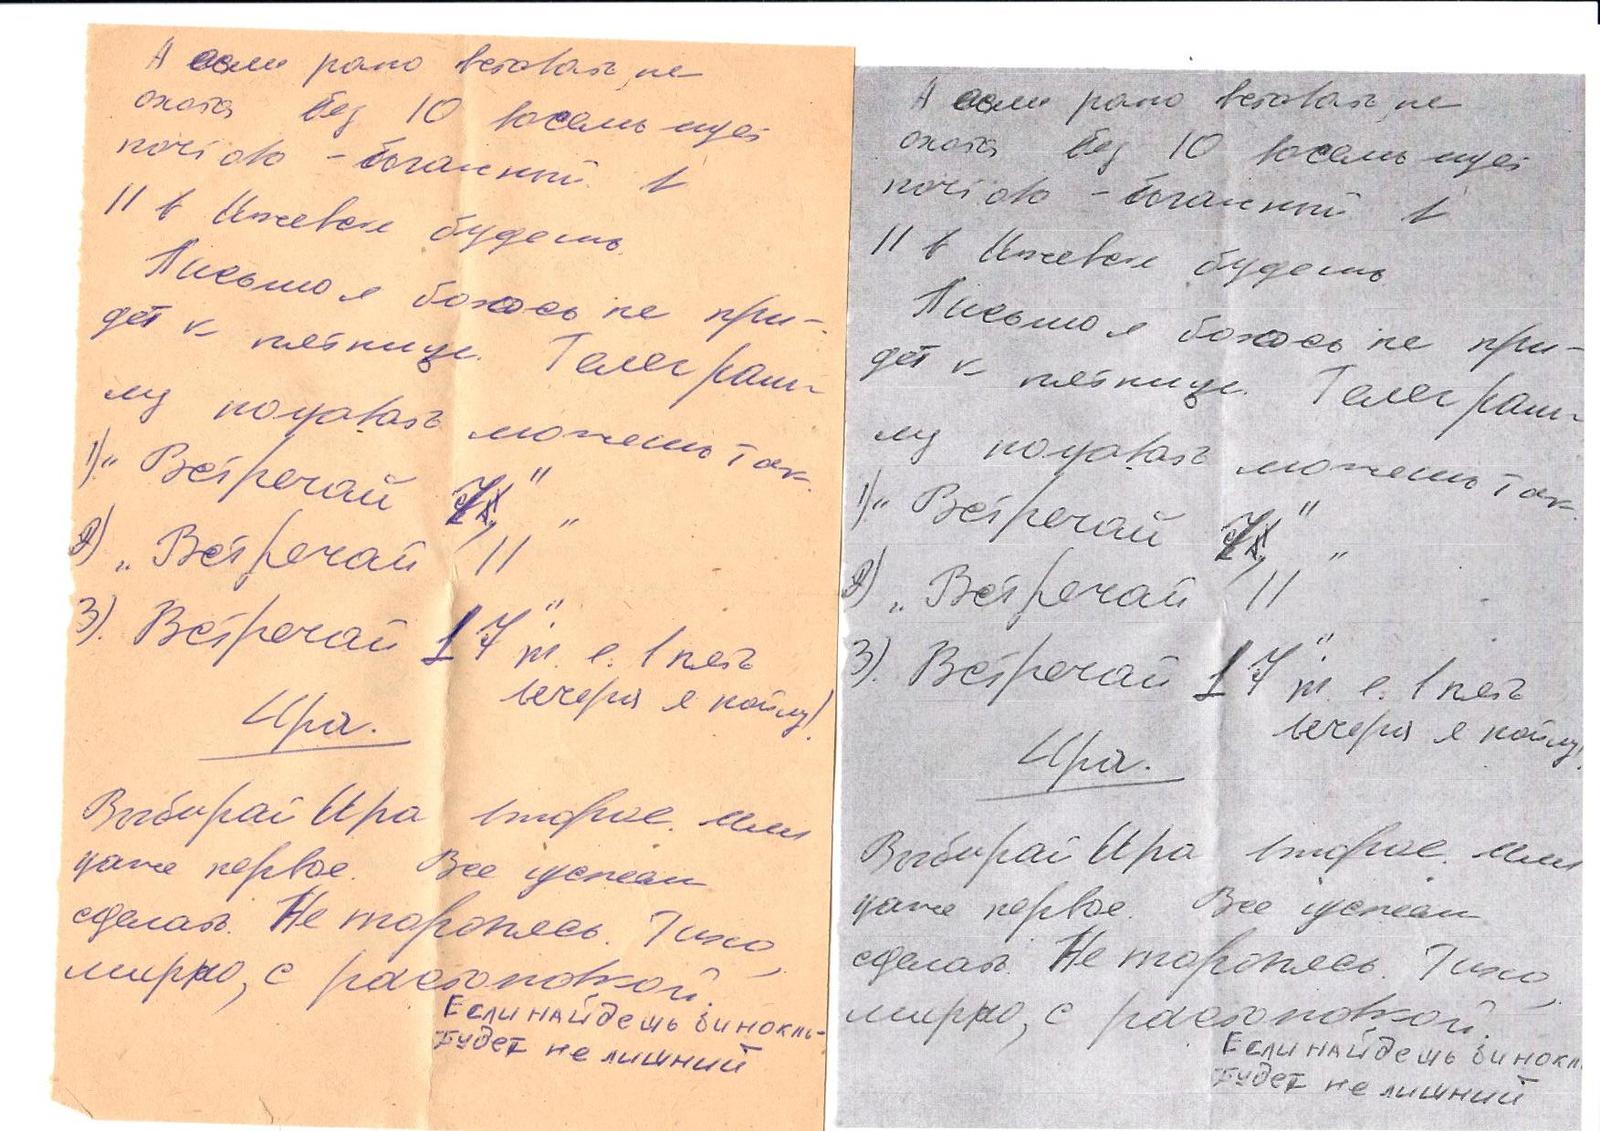 А если рано вставать, не
охота без 10 восемь идет
поезд
11 в Ижевск будешь.
Письмо я боюсь не при-
дет к пятнице. Телеграм-
му подавать можешь так.
1) „Встречай 7"
2) „Встречай 11"
3). Встречай 17" т. е. в пять
вечера я пойму!
Ира.
Выбирай Ира второе. Или
даже первое. Все успеем
сделать. Не торопясь. Тихо,
мирно, с расстановкой.
Если найдешь бинокль-
будет не лишний
А если рано вставать, не
охота без 10 восемь идет
поезд
11 в Ижевск будешь
Письмо я боюсь не при-
дет к пятнице. Телеграм-
му подавать можешь так.
1) „Встречай 7"
2) „Встречай 11"
3). Встречай 17" т. е. в пять
вечера я пойму!
Ира.
Выбирай Ира второе. Или
даже первое. Все успеем
сделать. Не торопясь. Тихо,
мирно, с расстановкой.
Если найдешь бинокл
будет не лишний